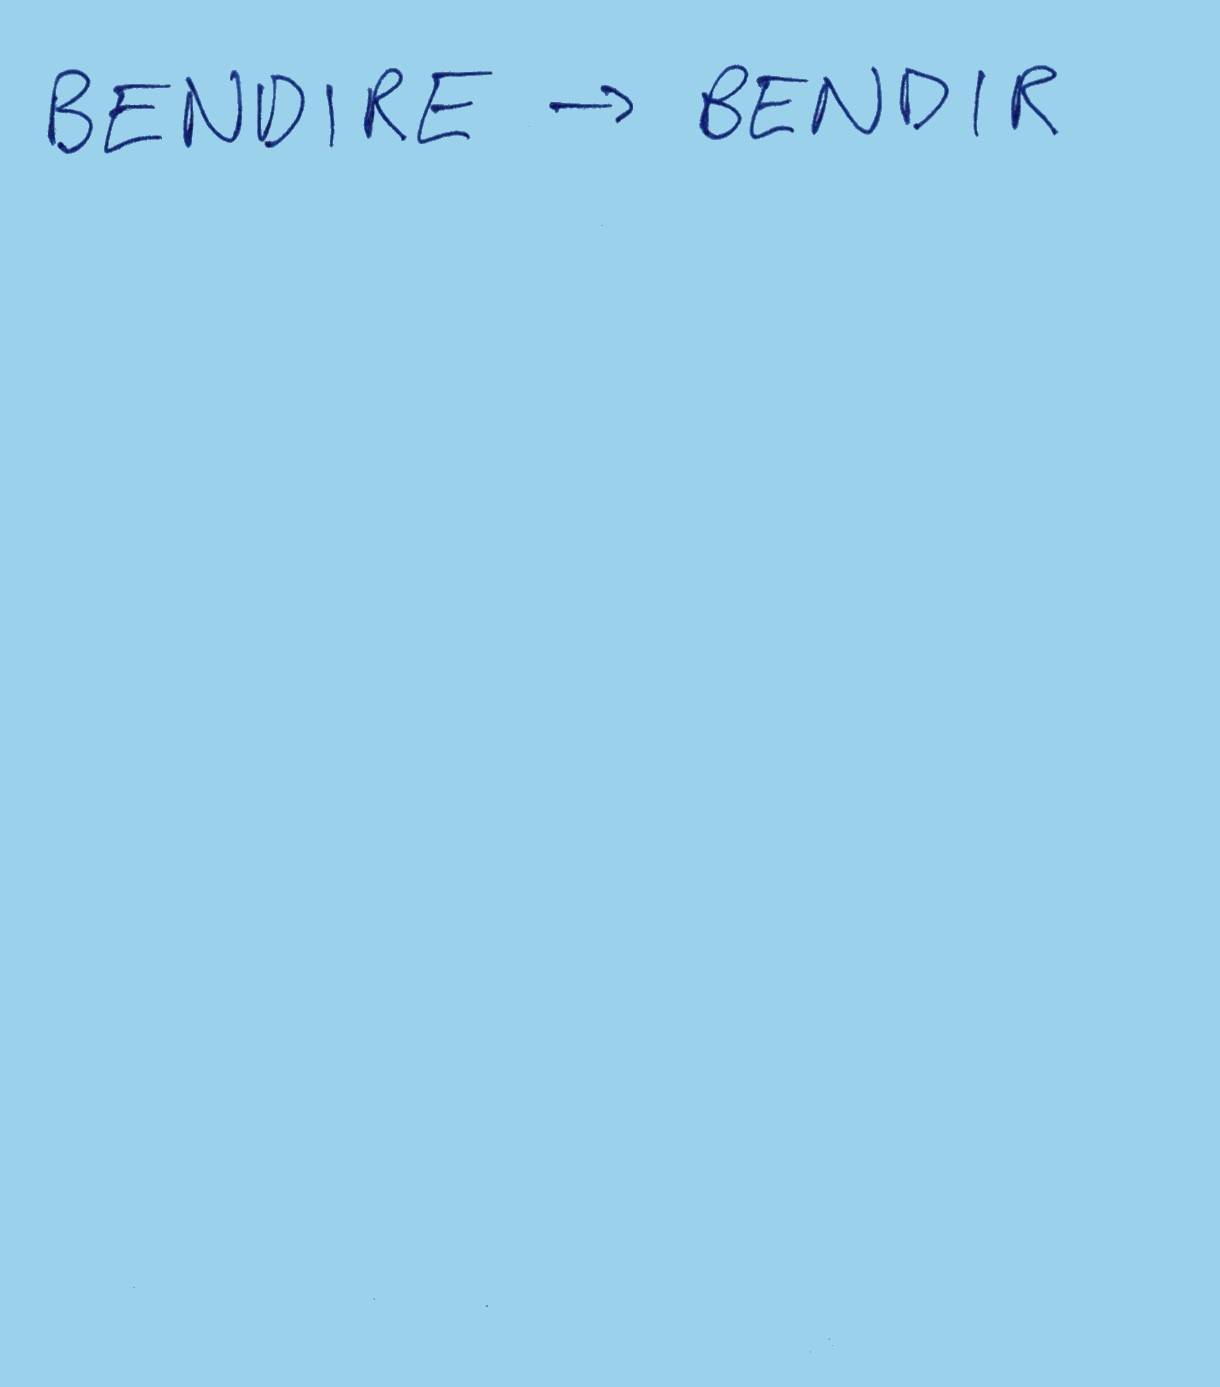 BENDIRE → BENDIR